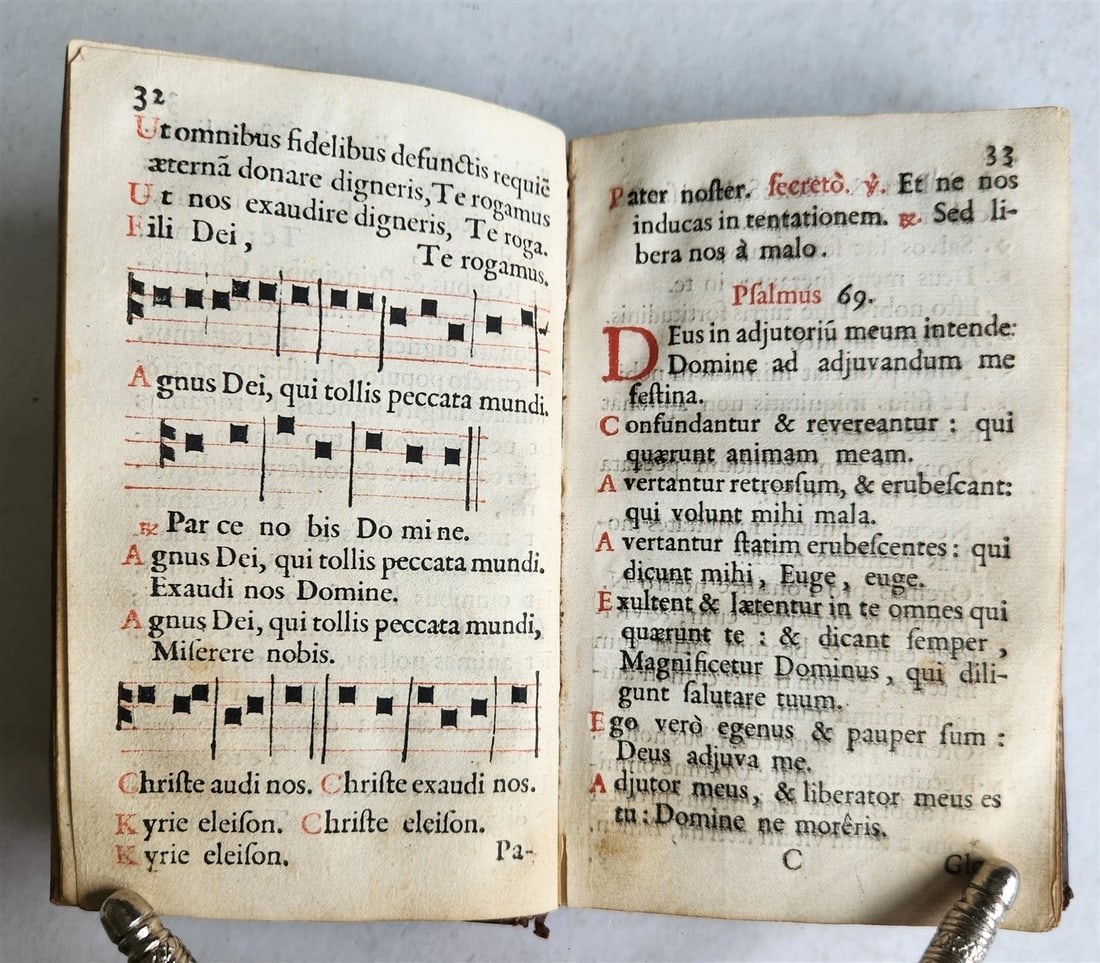 32
Ut omnibus fidelibus defunctis requiē
æternā donare digneris, Te rogamus
Ut nos exaudire digneris, Te roga.
Fili Dei, Te rogamus.
Agnus Dei, qui tollis peccata mundi.
℟ Par ce no bis Do mi ne.
Agnus Dei, qui tollis peccata mundi.
Exaudi nos Domine.
Agnus Dei, qui tollis peccata mundi,
Miſerere nobis.
Chriſte audi nos. Chriſte exaudi nos.
Kyrie eleiſon. Chriſte eleiſon.
Kyrie eleiſon.
Pa-
33
Pater noſter. ſecretò. ℣. Et ne nos
inducas in tentationem. ℟. Sed li-
bera nos à malo.
Pſalmus 69.
DEus in adjutoriū meum intende:
Domine ad adjuvandum me
feſtina.
Confundantur & revereantur : qui
quærunt animam meam.
Avertantur retrorſum, & erubeſcant:
qui volunt mihi mala.
Avertantur ſtatim erubeſcentes : qui
dicunt mihi, Euge, euge.
Exultent & lætentur in te omnes qui
quærunt te : & dicant ſemper,
Magnificetur Dominus, qui dili-
gunt ſalutare tuum.
Ego verò egenus & pauper ſum :
Deus adjuva me.
Adjutor meus, & liberator meus es
tu : Domine ne morêris.
C